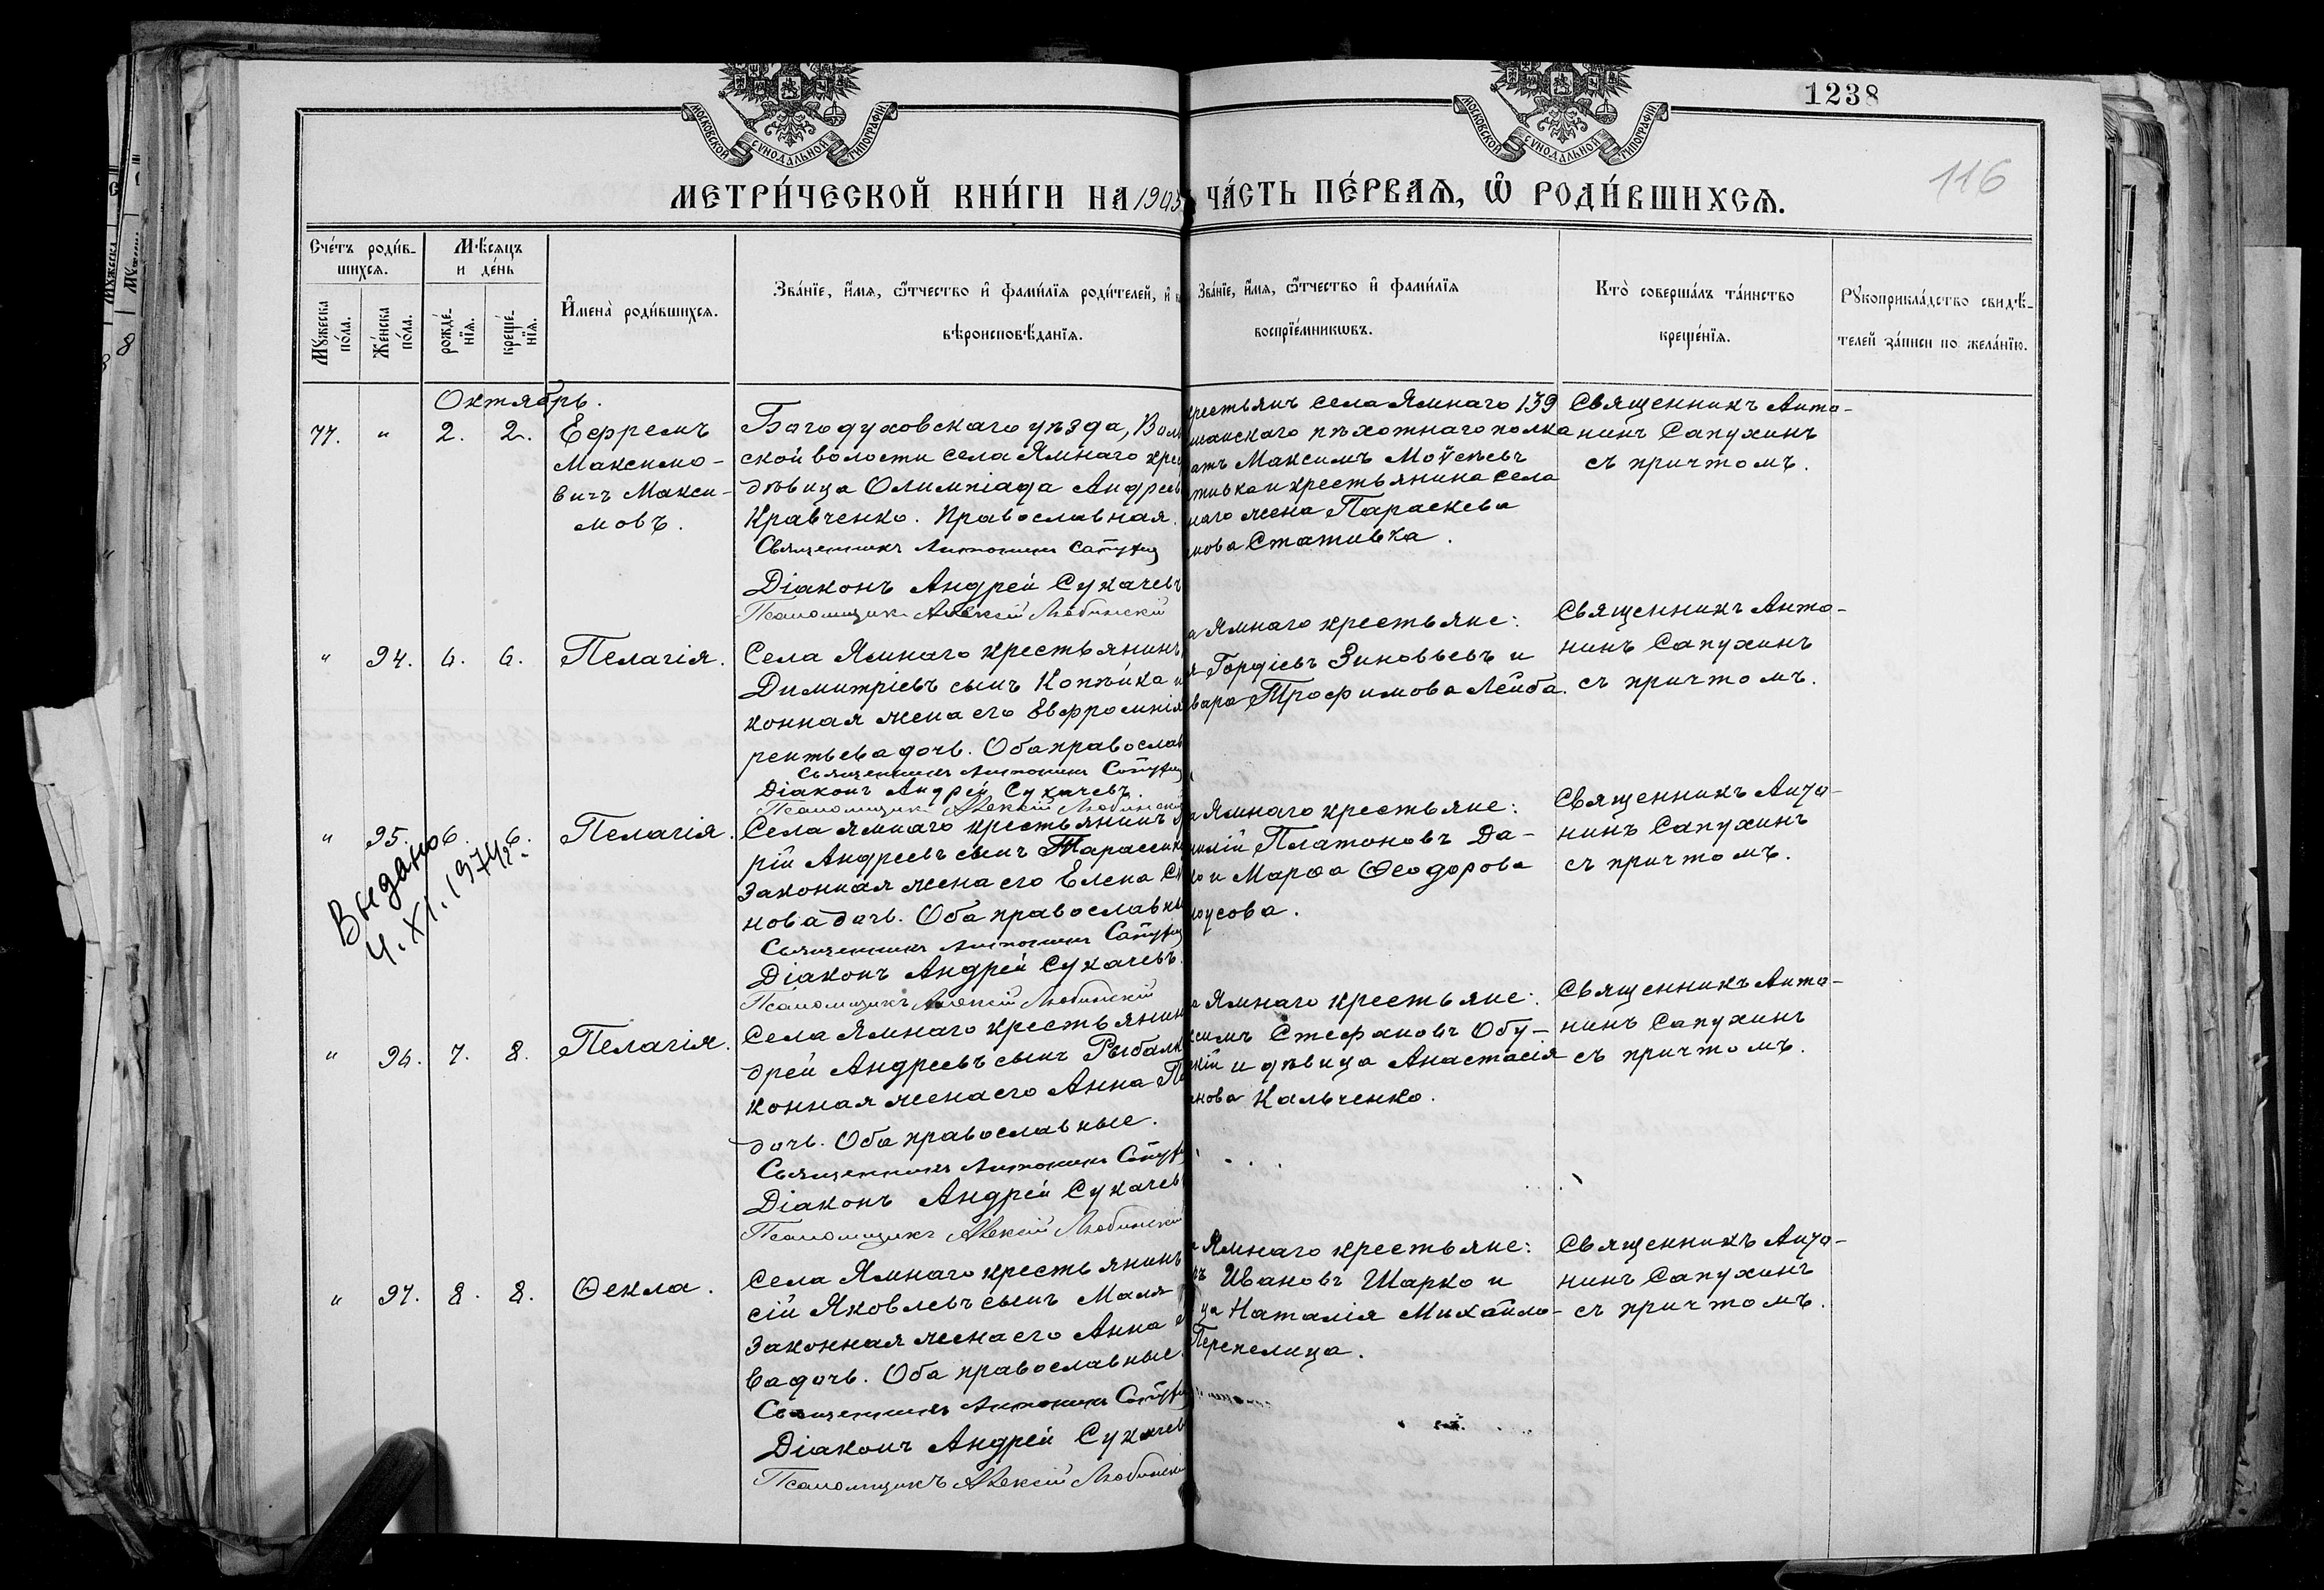 1238
116
МОСКОВСКОЙ СѴНОДАЛЬНОЙ ТИПОГРАФІИ
МОСКОВСКОЙ СѴНОДАЛЬНОЙ ТИПОГРАФІИ
МЕТРИ́ЧЕСКОЙ КНИ́ГИ НА 1905
ЧА́СТЬ ПЕ́РВАѦ, Ѿ РОДИ́ВШИХСѦ.
Сче́тъ роди́в-
шихсѧ.
Мꙋжеска по́ла.
Же́нска по́ла.
Мѣ́сѧцъ
и де́нь
рожде́-
нїѧ.
креще́-
нїѧ.
И҆мена̀ роди́вшихсѧ.
Зва́нїе, и҆́мѧ, ѻ҆́тчество и҆ фами́лїѧ роди́телей, и҆
вѣроисповѣ́данїѧ.
Зва́нїе, и҆́мѧ, ѻ҆́тчество и҆ фами́лїѧ
воспрїе́мникѡвъ.
Кто̀ соверша́лъ та́инство
креще́нїѧ.
Рꙋкоприкла́дство свидѣ́-
телей за́писи по жела́нїю.
Октябрь.
77. " 2. 2.
Ефремъ
Максимо-
вичъ Макси-
мовъ.
Богодуховскаго уѣзда, Воль
ской волости села Ямнаго крес
дѣвица Олимпіада Андреев
Кравченко. Православная.
Священникъ Антонинъ Сапухин
Діаконъ Андрей Сукачевъ
Псаломщикъ Алексій Любинскій
крестьянъ села Ямнаго 139
шанскаго пѣхотнаго полка
атъ Максимъ Моѵсѣевъ
тивка и крестьянина села
наго жена Параскева
мова Стативка.
Священникъ Анто-
нинъ Сапухинъ
съ причтомъ.
" 94. 6. 6. Пелагія.
Села Ямнаго крестьянинъ
Димитріевъ сынъ Копѣйка и
конная жена его Евфросинія
рентьева дочь. Оба православ
Священникъ Антонинъ Сапухин
Діаконъ Андрей Сукачевъ.
Псаломщикъ Алексій Любинскій
а Ямнаго крестьяне:
я Гордіевъ Зиновьевъ и
вара Трофимова Лейба.
Священникъ Анто-
нинъ Сапухинъ
съ причтомъ.
" 95. 6. 6. Пелагія.
Выдано
4. XI. 1974 г.
Села Ямнаго крестьянинъ
рій Андреевъ сынъ Тарасенк
законная жена его Елена
нова дочь. Оба православны
Священникъ Антонинъ Сапухин
Діаконъ Андрей Сукачевъ.
Псаломщикъ Алексій Любинскій
а Ямнаго крестьяне:
милій Платоновъ Да-
ко и Марѳа Ѳеодорова
оусова.
Священникъ Анто-
нинъ Сапухинъ
съ причтомъ.
" 96. 7. 8. Пелагія.
Села Ямнаго крестьянин
дрей Андреевъ сынъ Рыбалк
конная жена его Анна
дочь. Оба православные.
Священникъ Антонинъ Сапухин
Діаконъ Андрей Сукачев
Псаломщикъ Алексій Любинскій
а Ямнаго крестьяне:
симъ Стефановъ Обу-
кій и дѣвица Анастасія
нова Кальченко.
Священникъ Анто-
нинъ Сапухинъ
съ причтомъ.
" 97. 8. 8. Ѳекла.
Села Ямнаго крестьянинъ
сій Яковлевъ сынъ Маля
законная жена его Анна
ва дочь. Оба православные.
Священникъ Антонинъ Сапухин
Діаконъ Андрей Сукачев
Псаломщикъ Алексій Любинскій
Ямнаго крестьяне:
въ Ивановъ Шарко и
ца Наталія Михайло-
Перепелица.
Священникъ Анто-
нинъ Сапухинъ
съ причтомъ.